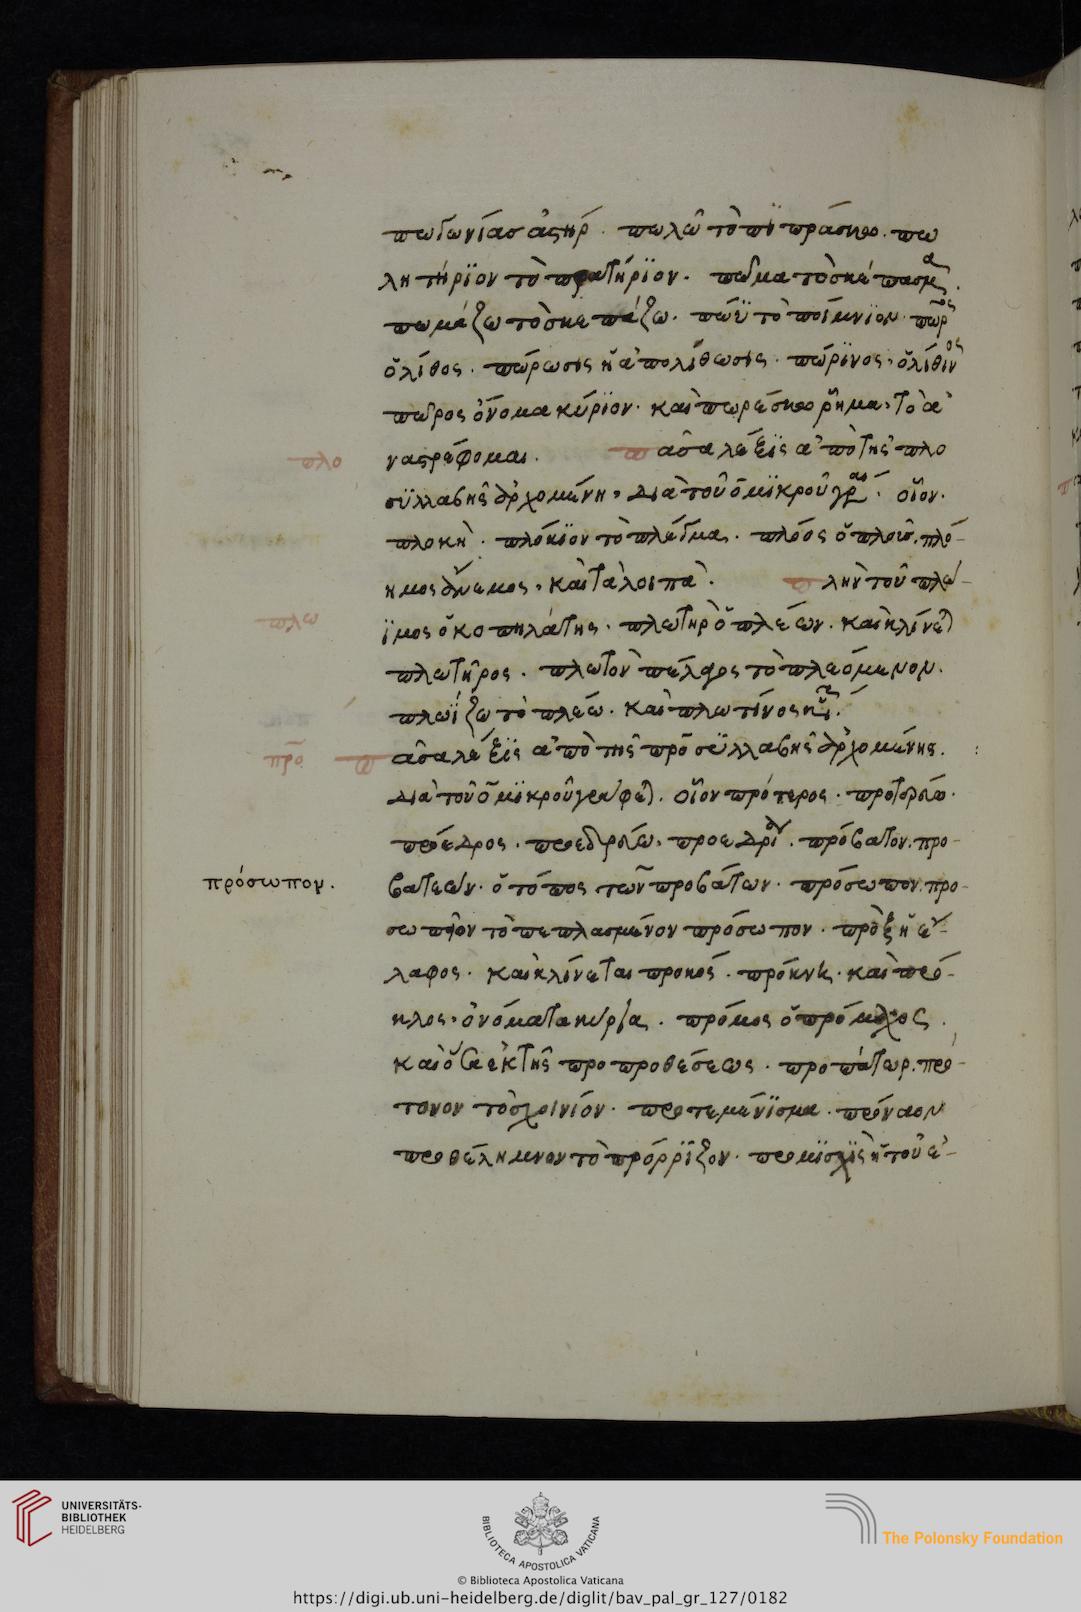 πωγωνίας ἀστήρ. πωλῶ τὸ πιπράσκω. πω
λητήριον τὸ πρατήριον. πῶμα τὸ σκέπασμα.
πωμάζω τὸ σκεπάζω. πῶϋ τὸ ποίμνιον. πῶρος
ὁ λίθος. πώρωσις ἡ ἀπολίθωσις. πώρινος, ὁ λίθινος
πῶρος ὄνομα κύριον. καὶ πωρέσκω ῥῆμα, τὸ ἀ
ναστρέφομαι. πᾶσα λέξις ἀπὸ τῆς πλο
πλο
συλλαβῆς ἀρχομένη, διὰ τοῦ ο μικροῦ γρ. οἷον.
πλοκὴ. πλόκιον τὸ πλέγμα. πλόος ὁ πλοῦς. πλό-
ϊμος ἄνεμος, καὶ τὰ λοιπὰ. πλὴν τοῦ πλώ-
πλω
ϊμος ὁ κοπηλάτης. πλωτὴρ ὁ πλέων. καὶ κλίνεται
πλωτῆρος. πλωτὸν πέλαγος τὸ πλεόμενον.
πλωΐζω τὸ πλέω. καὶ πλωτῖνος
προ
πᾶσα λέξις ἀπὸ τῆς προ συλλαβῆς ἀρχομένης.
διὰ τοῦ ο μικροῦ γράφεται. οἷον πρότερος.
πρόεδρος. προεδρία. πρόβατον. προ-
πρόσωπον.
βατεών. ὁ τόπος τῶν προβάτων. πρόσωπον. προ-
σωπεῖον τὸ πεπλασμένον πρόσωπον. πρὸξ ἡ ἔ-
λαφος. καὶ κλίνεται προκός. πρόκνη. καὶ πρό-
κλος, ὀνόματα κύρια. πρόμος ὁ πρόμαχος.
καὶ ὅσα ἐκ τῆς προ προθέσεως. προπάτωρ. πρό-
τονον τὸ σχοινίον. προτεμένισμα. πρόναον
προθέλυμνον τὸ πρόρριζον. ἡ τοῦ ἐ-
UNIVERSITÄTS-
BIBLIOTHEK
HEIDELBERG
BIBLIOTECA APOSTOLICA VATICANA
The Polonsky Foundation
© Biblioteca Apostolica Vaticana
https://digi.ub.uni-heidelberg.de/diglit/bav_pal_gr_127/0182